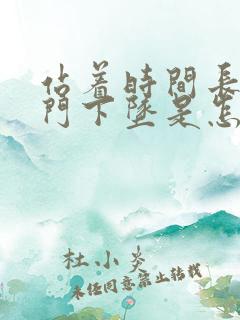 站着時間長
門下墜是怎
杜小炎
未经同意禁止转载